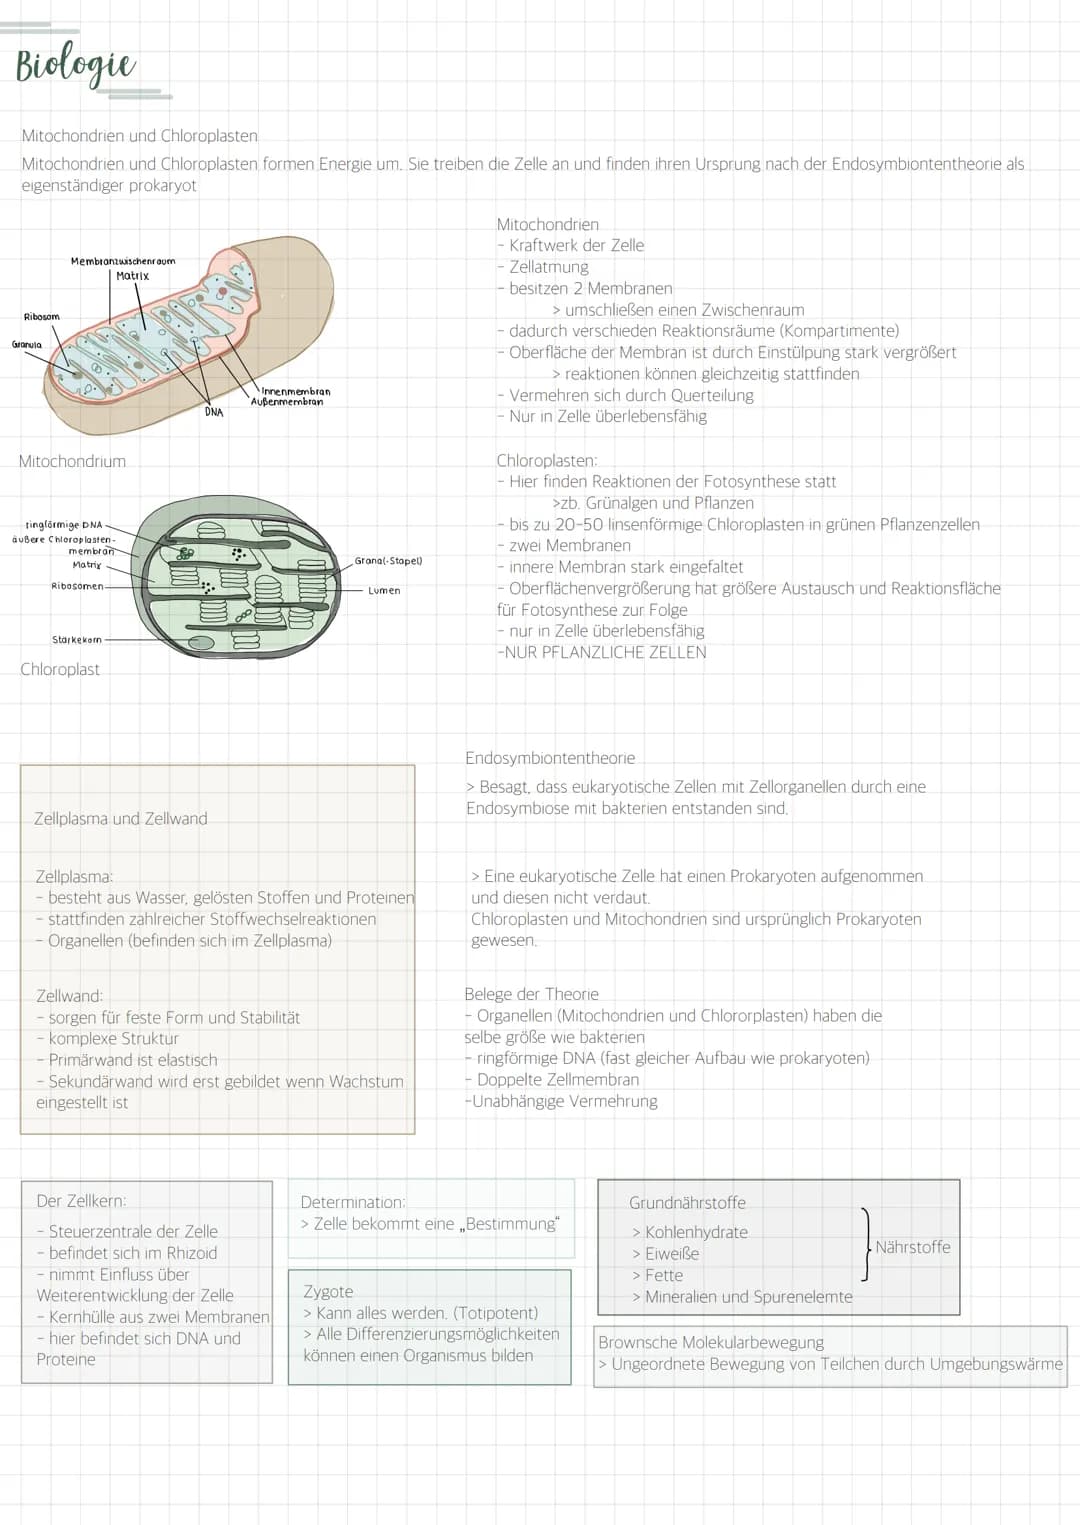 Biologie
Mitochondrien und Chloroplasten
Mitochondrien und Chloroplasten formen Energie um. Sie treiben die Zelle an und finden ihren Ursprung nach der Endosymbiontentheorie als
eigenständiger prokaryot
Membranzwischenraum
Matrix
Ribosom
Granula
Innenmembran
Außenmembran
DNA
Mitochondrium
Mitochondrien
- Kraftwerk der Zelle
- Zellatmung
- besitzen 2 Membranen
> umschließen einen Zwischenraum
- dadurch verschieden Reaktionsräume (Kompartimente)
- Oberfläche der Membran ist durch Einstülpung stark vergrößert
> reaktionen können gleichzeitig stattfinden
- Vermehren sich durch Querteilung
- Nur in Zelle überlebensfähig
ringförmige DNA
äußere Chloroplasten-
membran
Matrix
Ribosomen
Stärkekorn
Grana(-Stapel)
Lumen
Chloroplast
Chloroplasten:
- Hier finden Reaktionen der Fotosynthese statt
>zb. Grünalgen und Pflanzen
- bis zu 20-50 linsenförmige Chloroplasten in grünen Pflanzenzellen
- zwei Membranen
- innere Membran stark eingefaltet
- Oberflächenvergrößerung hat größere Austausch und Reaktionsfläche
für Fotosynthese zur Folge
- nur in Zelle überlebensfähig
-NUR PFLANZLICHE ZELLEN
Zellplasma und Zellwand
Zellplasma:
- besteht aus Wasser, gelösten Stoffen und Proteinen
- stattfinden zahlreicher Stoffwechselreaktionen
- Organellen (befinden sich im Zellplasma)
Zellwand:
- sorgen für feste Form und Stabilität
- komplexe Struktur
- Primärwand ist elastisch
- Sekundärwand wird erst gebildet wenn Wachstum
eingestellt ist
Endosymbiontentheorie
> Besagt, dass eukaryotische Zellen mit Zellorganellen durch eine
Endosymbiose mit bakterien entstanden sind.
> Eine eukaryotische Zelle hat einen Prokaryoten aufgenommen
und diesen nicht verdaut.
Chloroplasten und Mitochondrien sind ursprünglich Prokaryoten
gewesen.
Belege der Theorie
- Organellen (Mitochondrien und Chlororplasten) haben die
selbe größe wie bakterien
- ringförmige DNA (fast gleicher Aufbau wie prokaryoten)
- Doppelte Zellmembran
-Unabhängige Vermehrung
Der Zellkern:
- Steuerzentrale der Zelle
- befindet sich im Rhizoid
- nimmt Einfluss über
Weiterentwicklung der Zelle
- Kernhülle aus zwei Membranen
- hier befindet sich DNA und
Proteine
Determination:
> Zelle bekommt eine „Bestimmung“
Zygote
> Kann alles werden. (Totipotent)
> Alle Differenzierungsmöglichkeiten
können einen Organismus bilden
Grundnährstoffe
> Kohlenhydrate
> Eiweiße
> Fette
> Mineralien und Spurenelemte
Nährstoffe
Brownsche Molekularbewegung
> Ungeordnete Bewegung von Teilchen durch Umgebungswärme